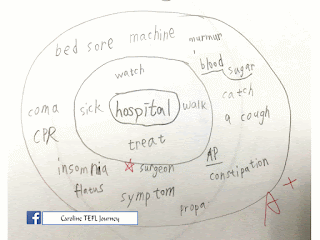 bed sore machine murmur
blood sugar
watch
catch
coma sick hospital walk a cough
CPR
treat
insomnia surgeon AP
flatus constipation
symptom
propa
A+
Caroline TEFL Journey